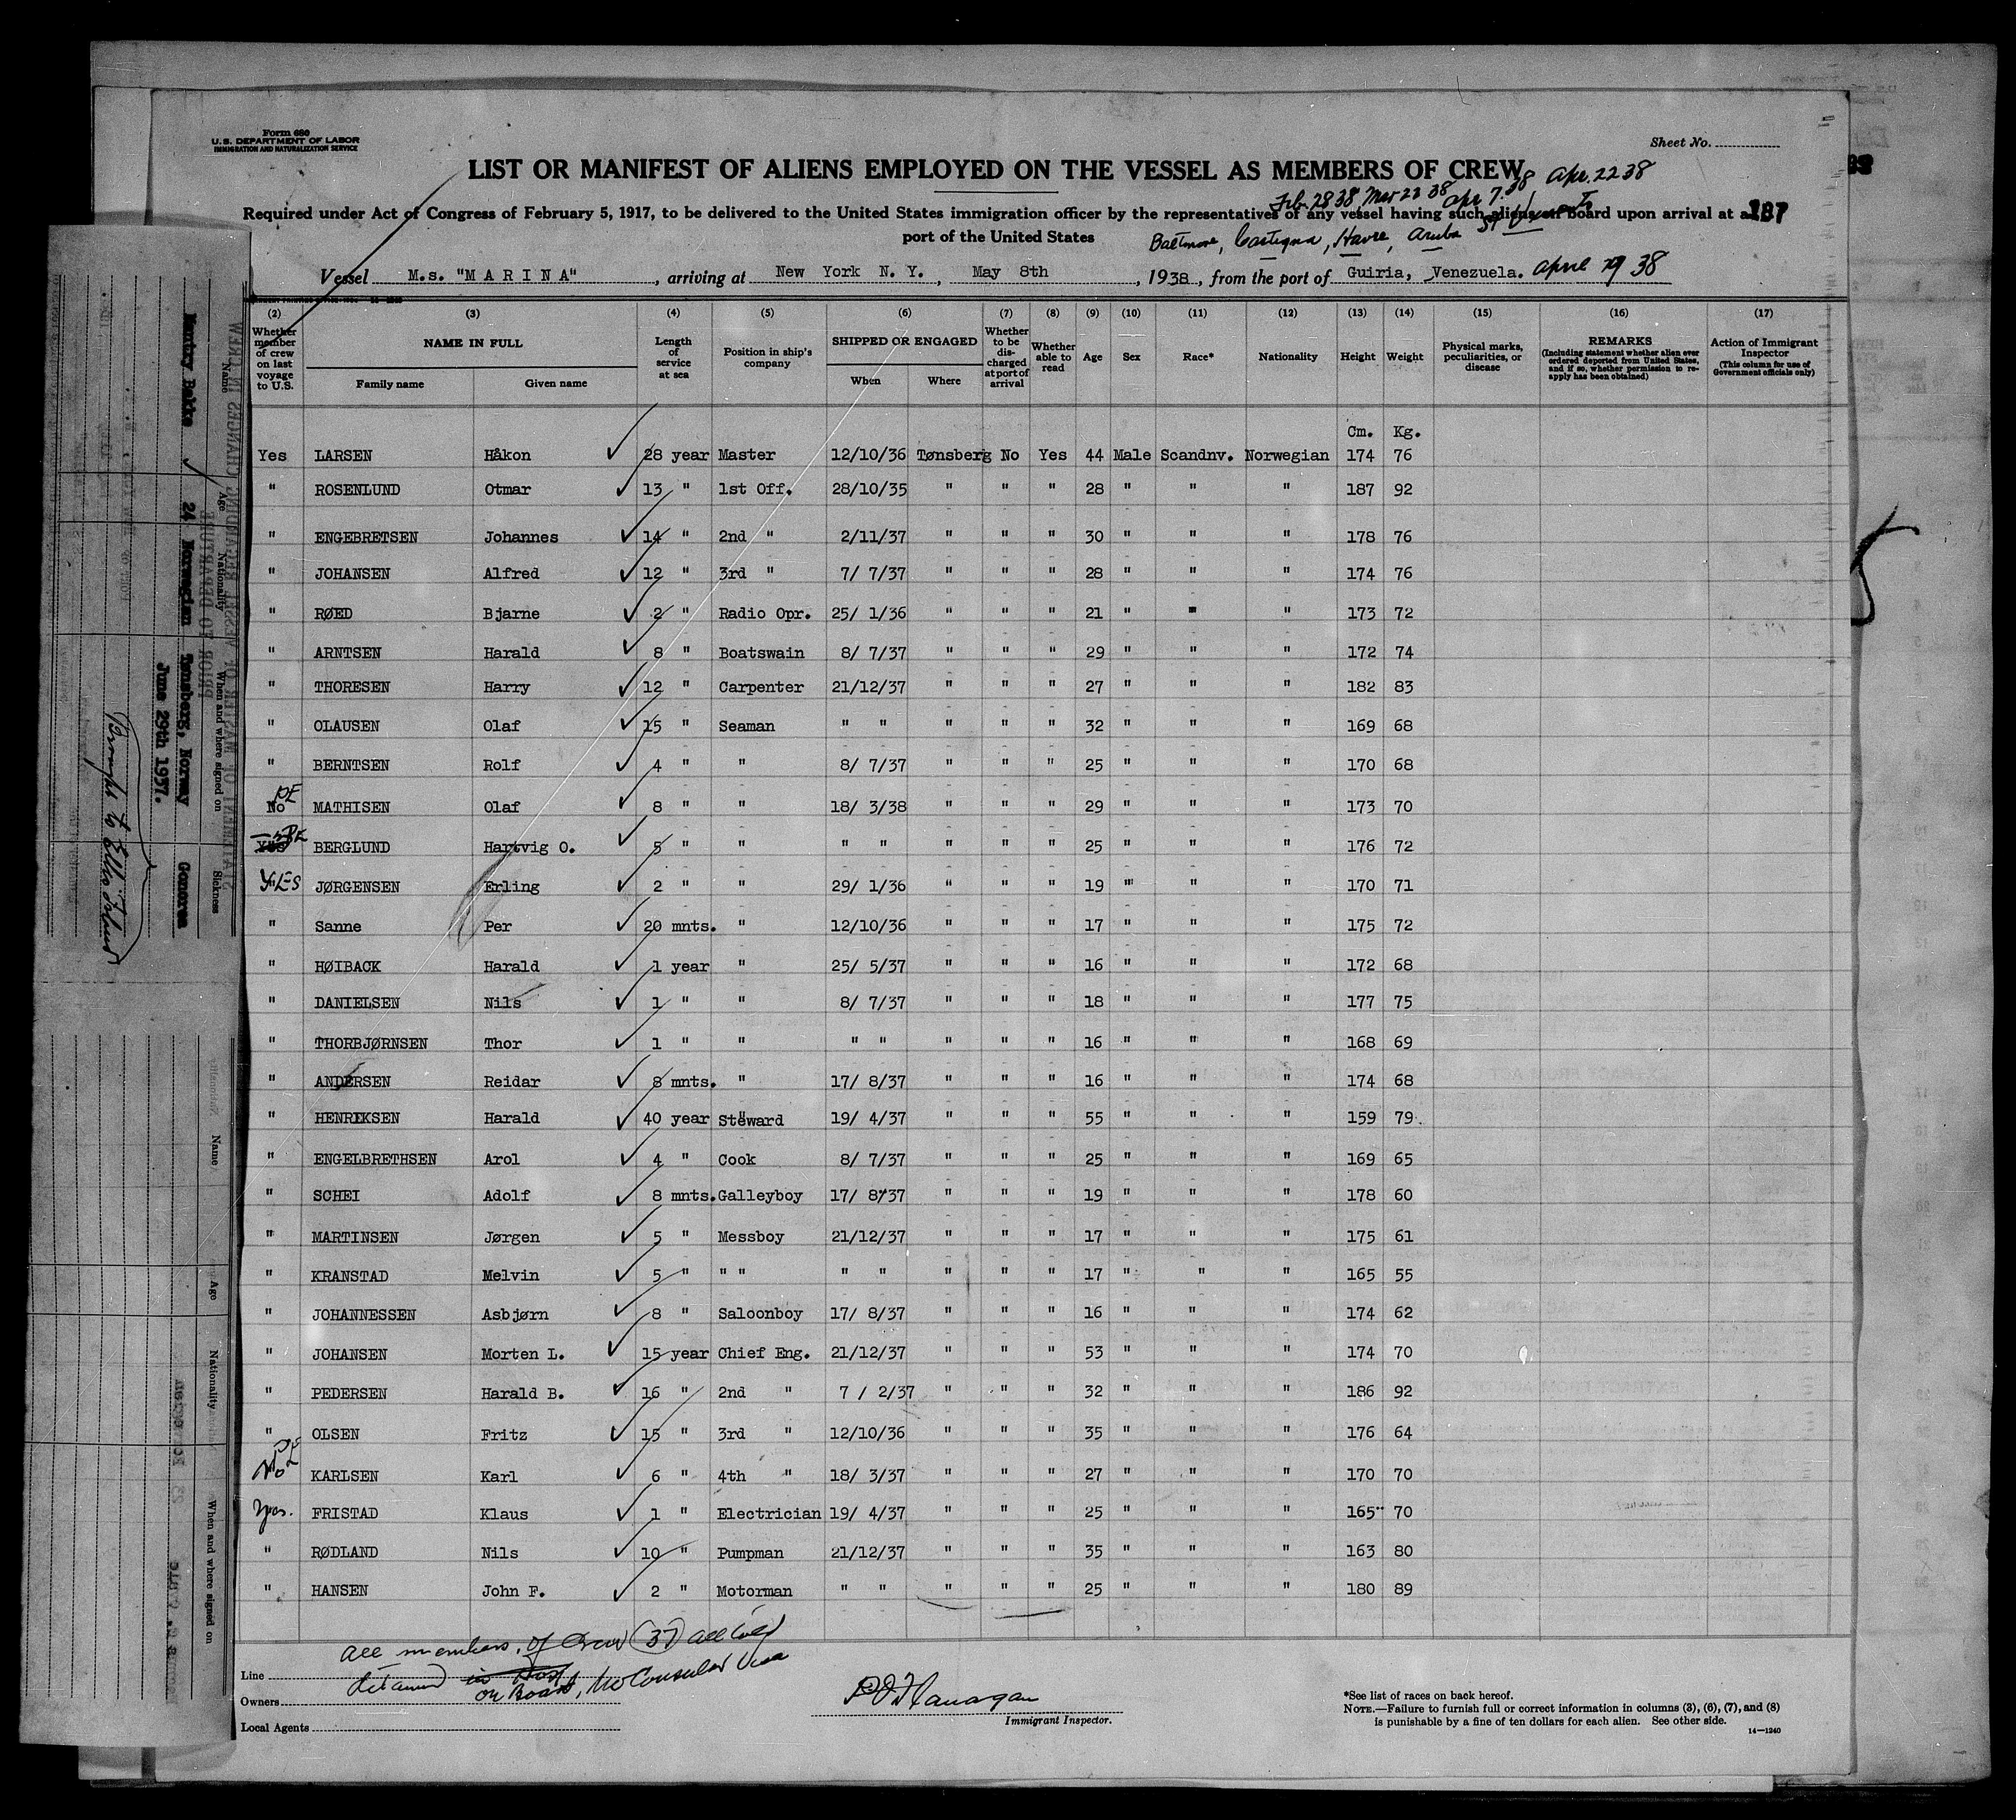 Form 680
U. S. DEPARTMENT OF LABOR
IMMIGRATION AND NATURALIZATION SERVICE
Sheet No.
LIST OR MANIFEST OF ALIENS EMPLOYED ON THE VESSEL AS MEMBERS OF CREW
Feb. 28 38 Mar 23 38 Apr 7. 38 Apr. 22 38
Required under Act of Congress of February 5, 1917, to be delivered to the United States immigration officer by the representatives of any vessel having such aliens on board upon arrival at a 187
port of the United States
Havre, Aruba St Vincent
Vessel M.s. "M A R I N A", arriving at New York N. Y., May 8th, 1938, from the port of Guiria, Venezuela. April 38
(2) (3) (4) (5) (6) (7) (8) (9) (10) (11) (12) (13) (14) (15) (16) (17)
Whether member of crew on last voyage to U.S.
NAME IN FULL
Family name Given name
Length of service at sea
Position in ship's company
SHIPPED OR ENGAGED
When Where
Whether to be discharged at port of arrival
Whether able to read
Age Sex Race* Nationality Height Weight
Physical marks, peculiarities, or disease
REMARKS
(Including statement whether alien ever ordered deported from United States, and if so, whether permission to reapply has been obtained)
Action of Immigrant Inspector
(This column for use of Government officials only)
Cm. Kg.
Yes LARSEN Håkon 28 year Master 12/10/36 Tønsberg No Yes 44 Male Scandnv. Norwegian 174 76
" ROSENLUND Otmar 13 " 1st Off. 28/10/35 " " " 28 " " " 187 92
" ENGEBRETSEN Johannes 14 " 2nd " 2/11/37 " " " 30 " " " 178 76
" JOHANSEN Alfred 12 " 3rd " 7/ 7/37 " " " 28 " " " 174 76
" RØED Bjarne 2 " Radio Opr. 25/ 1/36 " " " 21 " " " 173 72
" ARNTSEN Harald 8 " Boatswain 8/ 7/37 " " " 29 " " " 172 74
" THORESEN Harry 12 " Carpenter 21/12/37 " " " 27 " " " 182 83
" OLAUSEN Olaf 15 " Seaman " " " " " 32 " " " 169 68
" BERNTSEN Rolf 4 " " 8/ 7/37 " " " 25 " " " 170 68
No PE MATHISEN Olaf 8 " " 18/ 3/38 " " " 29 " " " 173 70
Yes PE BERGLUND Hartvig O. 5 " " " " " " " 25 " " " 176 72
YES JØRGENSEN Erling 2 " " 29/ 1/36 " " " 19 " " " 170 71
" Sanne Per 20 mnts. " 12/10/36 " " " 17 " " " 175 72
" HØIBACK Harald 1 year " 25/ 5/37 " " " 16 " " " 172 68
" DANIELSEN Nils 1 " " 8/ 7/37 " " " 18 " " " 177 75
" THORBJØRNSEN Thor 1 " " " " " " " 16 " " " 168 69
" ANDERSEN Reidar 8 mnts. " 17/ 8/37 " " " 16 " " " 174 68
" HENRIKSEN Harald 40 year Steward 19/ 4/37 " " " 55 " " " 159 79
" ENGELBRETHSEN Arol 4 " Cook 8/ 7/37 " " " 25 " " " 169 65
" SCHEI Adolf 8 mnts. Galleyboy 17/ 8/37 " " " 19 " " " 178 60
" MARTINSEN Jørgen 5 " Messboy 21/12/37 " " " 17 " " " 175 61
" KRANSTAD Melvin 5 " " " " " " " " 17 " " " 165 55
" JOHANNESSEN Asbjørn 8 " Saloonboy 17/ 8/37 " " " 16 " " " 174 62
" JOHANSEN Morten L. 15 year Chief Eng. 21/12/37 " " " 53 " " " 174 70
" PEDERSEN Harald B. 16 " 2nd " 7 / 2/37 " " " 32 " " " 186 92
" OLSEN Fritz 15 " 3rd " 12/10/36 " " " 35 " " " 176 64
No PE KARLSEN Karl 6 " 4th " 18/ 3/37 " " " 27 " " " 170 70
Yes. FRISTAD Klaus 1 " Electrician 19/ 4/37 " " " 25 " " " 165 70
" RØDLAND Nils 10 " Pumpman 21/12/37 " " " 35 " " " 163 80
" HANSEN John F. 2 " Motorman " " " " " 25 " " " 180 89
All members of Crew (37) all told
detained on Board, No Consular Visa
Line
Owners
Local Agents
Flanagan
Immigrant Inspector.
*See list of races on back hereof.
NOTE.—Failure to furnish full or correct information in columns (3), (6), (7), and (8)
is punishable by a fine of ten dollars for each alien. See other side.
14—1240
Name Age Nationality When and where signed on Sickness
Bakke 24 Norwegian Tønsberg, Norway
June 29th 1937.
Brought to Ellis Island
Name Age Nationality When and where signed on